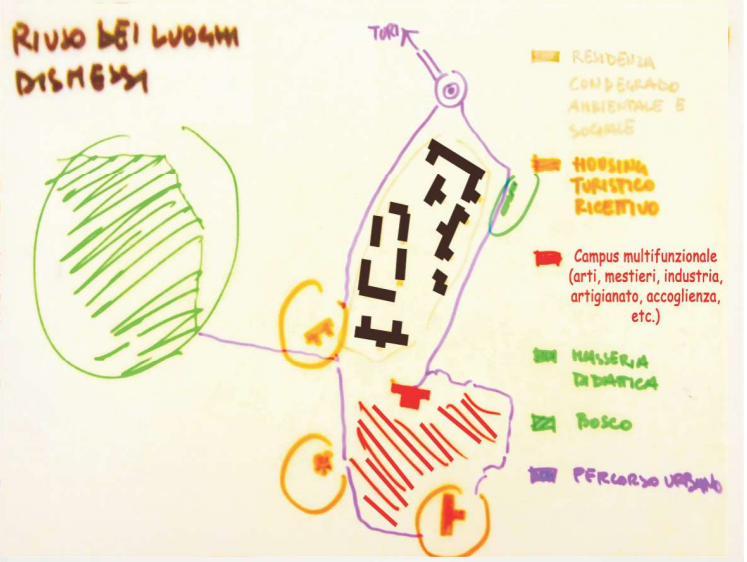 RIUSO DEI LUOGHI
DISMESSI
TURI
RESIDENZA
CON DEGRADO
AMBIENTALE E
SOCIALE
HOUSING
TURISTICO
RICETTIVO
Campus multifunzionale
(arti, mestieri, industria,
artigianato, accoglienza,
etc.)
MASSERIA
DIDATTICA
BOSCO
PERCORSO URBANO